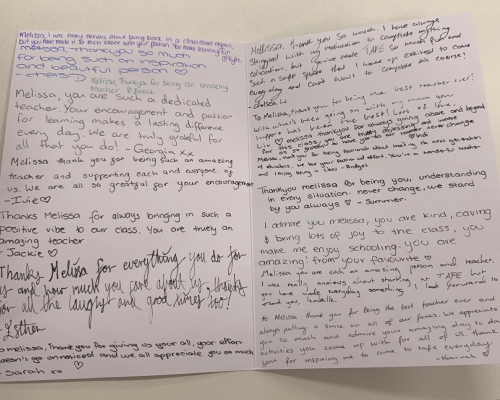 Melissa, I was really nervous about being back in a classroom again,
but you have made it so much easier with your passion. You make learning fun
Melissa, Thankyou so much
For being such an inspiration
and beautiful person ♡
Melissa, Thankyou for being an amazing
teacher.
Melissa, you are such a dedicated
teacher. Your encouragement and passion
for learning makes a lasting difference
every day. We are truly grateful for
all that you do! - Georgia xx
Melissa thank you for being such an amazing
teacher and supporting each and everyone of
us. We are all so greatful for your encouragment
- Ivie ♡
Thanks Melissa for always bringing in such a
positive vibe to our class. You are truely an
amazing teacher
- Jackie ♡
Thanks Melissa for everything you do for
us and how much you care about us, thanks
for all the laughs and good times too!
Esther
Melissa, Thankyou for giving us your all, your effort
doesn't go unnoticed and we all appreciate you so much
- Sarah xo
Mellissa, thank you so much. I have always
struggled with my motivation to complete anything
education, but you've made TAFE so much fun and
such a safe space that I wake up excited to come
every day and can't wait to complete this course!
To Melissa, thank you for being the best teacher ever!
With what's been going on with my mum your
support has been the best! Lots of love,
Liv ♡ Melissa thankyou for always going above and beyond
for this class, you are truely amazing and we are
so grateful to have you as our teacher, never change
Melissa, thank you for being passionate about teaching the next generation
of educators. We see your tireless effort. You're a wonderful teacher
and loving being in class - Bridget
Thankyou melissa for being you, understanding
in every situation. never change, we stand
by you always ♡ - Summer.
I admire you melissa, you are kind, caring
& bring lots of joy to the class, you
make me enjoy schooling. you are
amazing! from your favourite ♡
Melissa you are such an amazing person and teacher.
I was really anxious about starting at TAFE but
you have made everyday something I look forward to
Thank you, Isabelle.
to Melissa thank you for being the best teacher ever and
always putting a smile on all of our faces. We appreciate
you so much and admire your amazing day to day
activities you come up with for all of us. thank
you for inspiring me to come to tafe everyday.